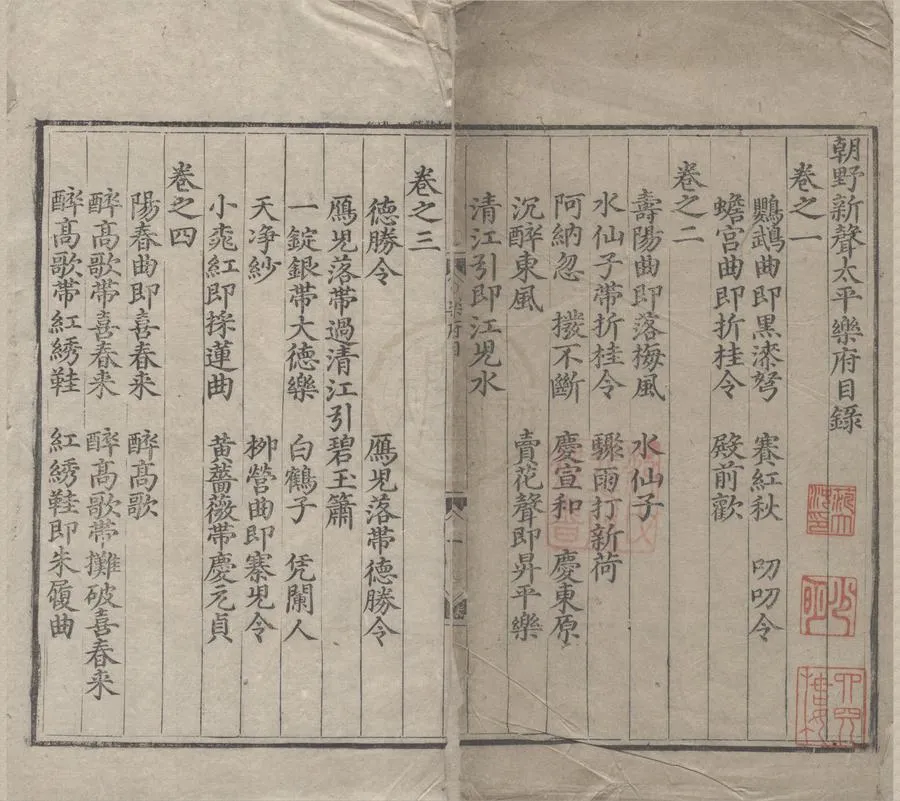 朝野新聲太平樂府目錄
卷之一
鸚鵡曲即黑漆弩 賽紅秋 叨叨令
蟾宮曲即折桂令 殿前歡
卷之二
壽陽曲即落梅風 水仙子
水仙子帶折桂令 驟雨打新荷
阿納忽 撥不斷 慶宣和 慶東原
沉醉東風 賣花聲即昇平樂
清江引即江兒水
卷之三
德勝令 鴈兒落帶德勝令
鴈兒落帶過清江引碧玉簫
一錠銀帶大德樂 白鶴子 凭闌人
天净紗 柳營曲即寨兒令
小桃紅即採蓮曲 黃薔薇帶慶元貞
卷之四
陽春曲即喜春来 醉高歌
醉高歌帶喜春来 醉高歌帶攤破喜春来
醉高歌帶紅綉鞋 紅綉鞋即朱履曲